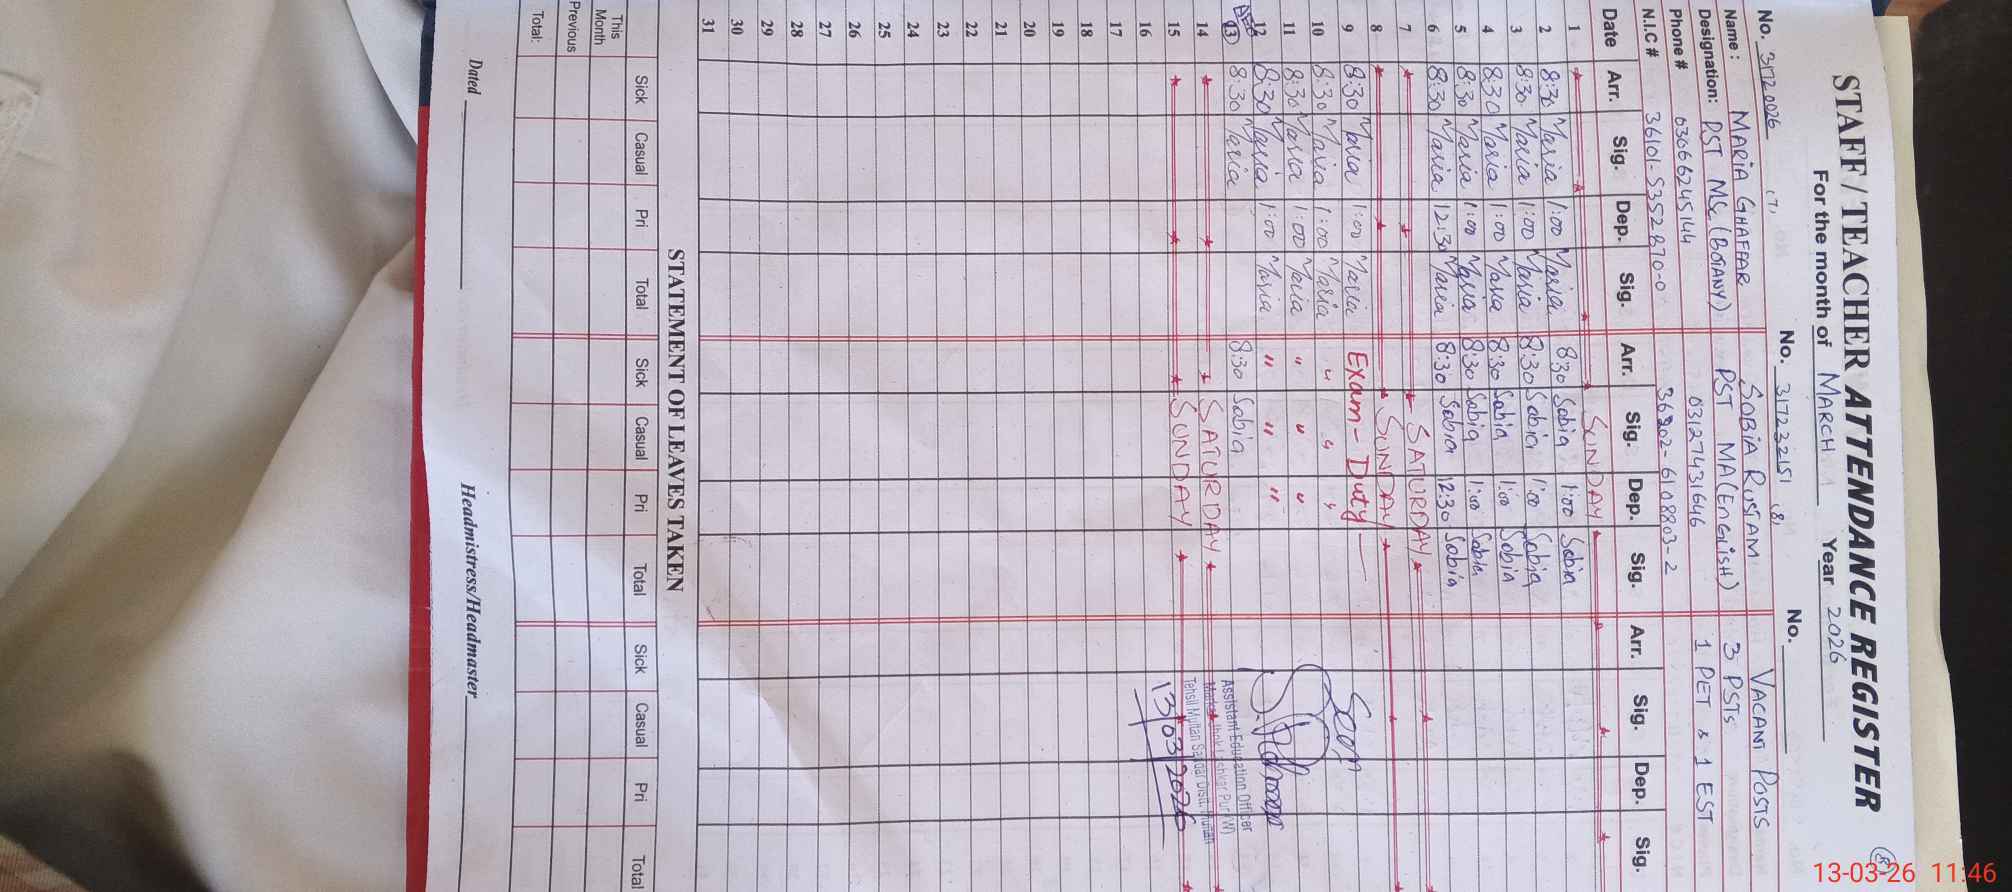 STAFF / TEACHER ATTENDANCE REGISTER
For the month of MARCH Year 2026
No. 31720026 (7) No. 31723251 (8) No.
Name : MARIA GHAFFAR SOBIA RUSTAM VACANT POSTS
Designation: PST MSc (BOTANY) PST MA (ENGLISH) 3 PSTs
Phone # 03066245144 03127431646 1 PET & 1 EST
N.I.C # 36101-5352870-0 36302-6108803-2
Date Arr. Sig. Dep. Sig. Arr. Sig. Dep. Sig. Arr. Sig. Dep. Sig.
1 SUNDAY
2 8:30 Maria 1:00 Maria 8:30 Sobia 1:00 Sobia
3 8:30 Maria 1:00 Maria 8:30 Sobia 1:00 Sobia
4 8:30 Maria 1:00 Maria 8:30 Sobia 1:00 Sobia
5 8:30 Maria 1:00 Maria 8:30 Sobia 1:00 Sobia
6 8:30 Maria 12:30 Maria 8:30 Sobia 12:30 Sobia
7 SATURDAY
8 SUNDAY
9 8:30 Maria 1:00 Maria Exam - Duty Seen
10 8:30 Maria 1:00 Maria " " "
11 8:30 Maria 1:00 Maria " " "
12 8:30 Maria 1:00 Maria " " "
AEO
13 8:30 Maria 8:30 Sobia
Assistant Education Officer
14 SATURDAY
Tehsil Multan Saddar Distt. Multan
15 SUNDAY
13/03/2026
16
17
18
19
20
21
22
23
24
25
26
27
28
29
30
31
STATEMENT OF LEAVES TAKEN
Sick Casual Pri Total Sick Casual Pri Total Sick Casual Pri Total
This Month
Previous
Total:
Dated Headmistress/Headmaster
13-03-26 11:46